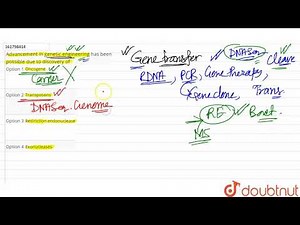 161798414
Advancement in genetic engineering has been
possible due to discovery of
Option 1 Oncogene
Cancer X
Option 2 Transposons
DNA Seq. Genome
Option 3 Restriction endonuclease
Option 4 Exonuclease
Gene transfer
DNASeq
Cleave
RDNA, PCR, Gene therapy,
Gene clone, Trans
RE
Bact.
MS
doubtnut